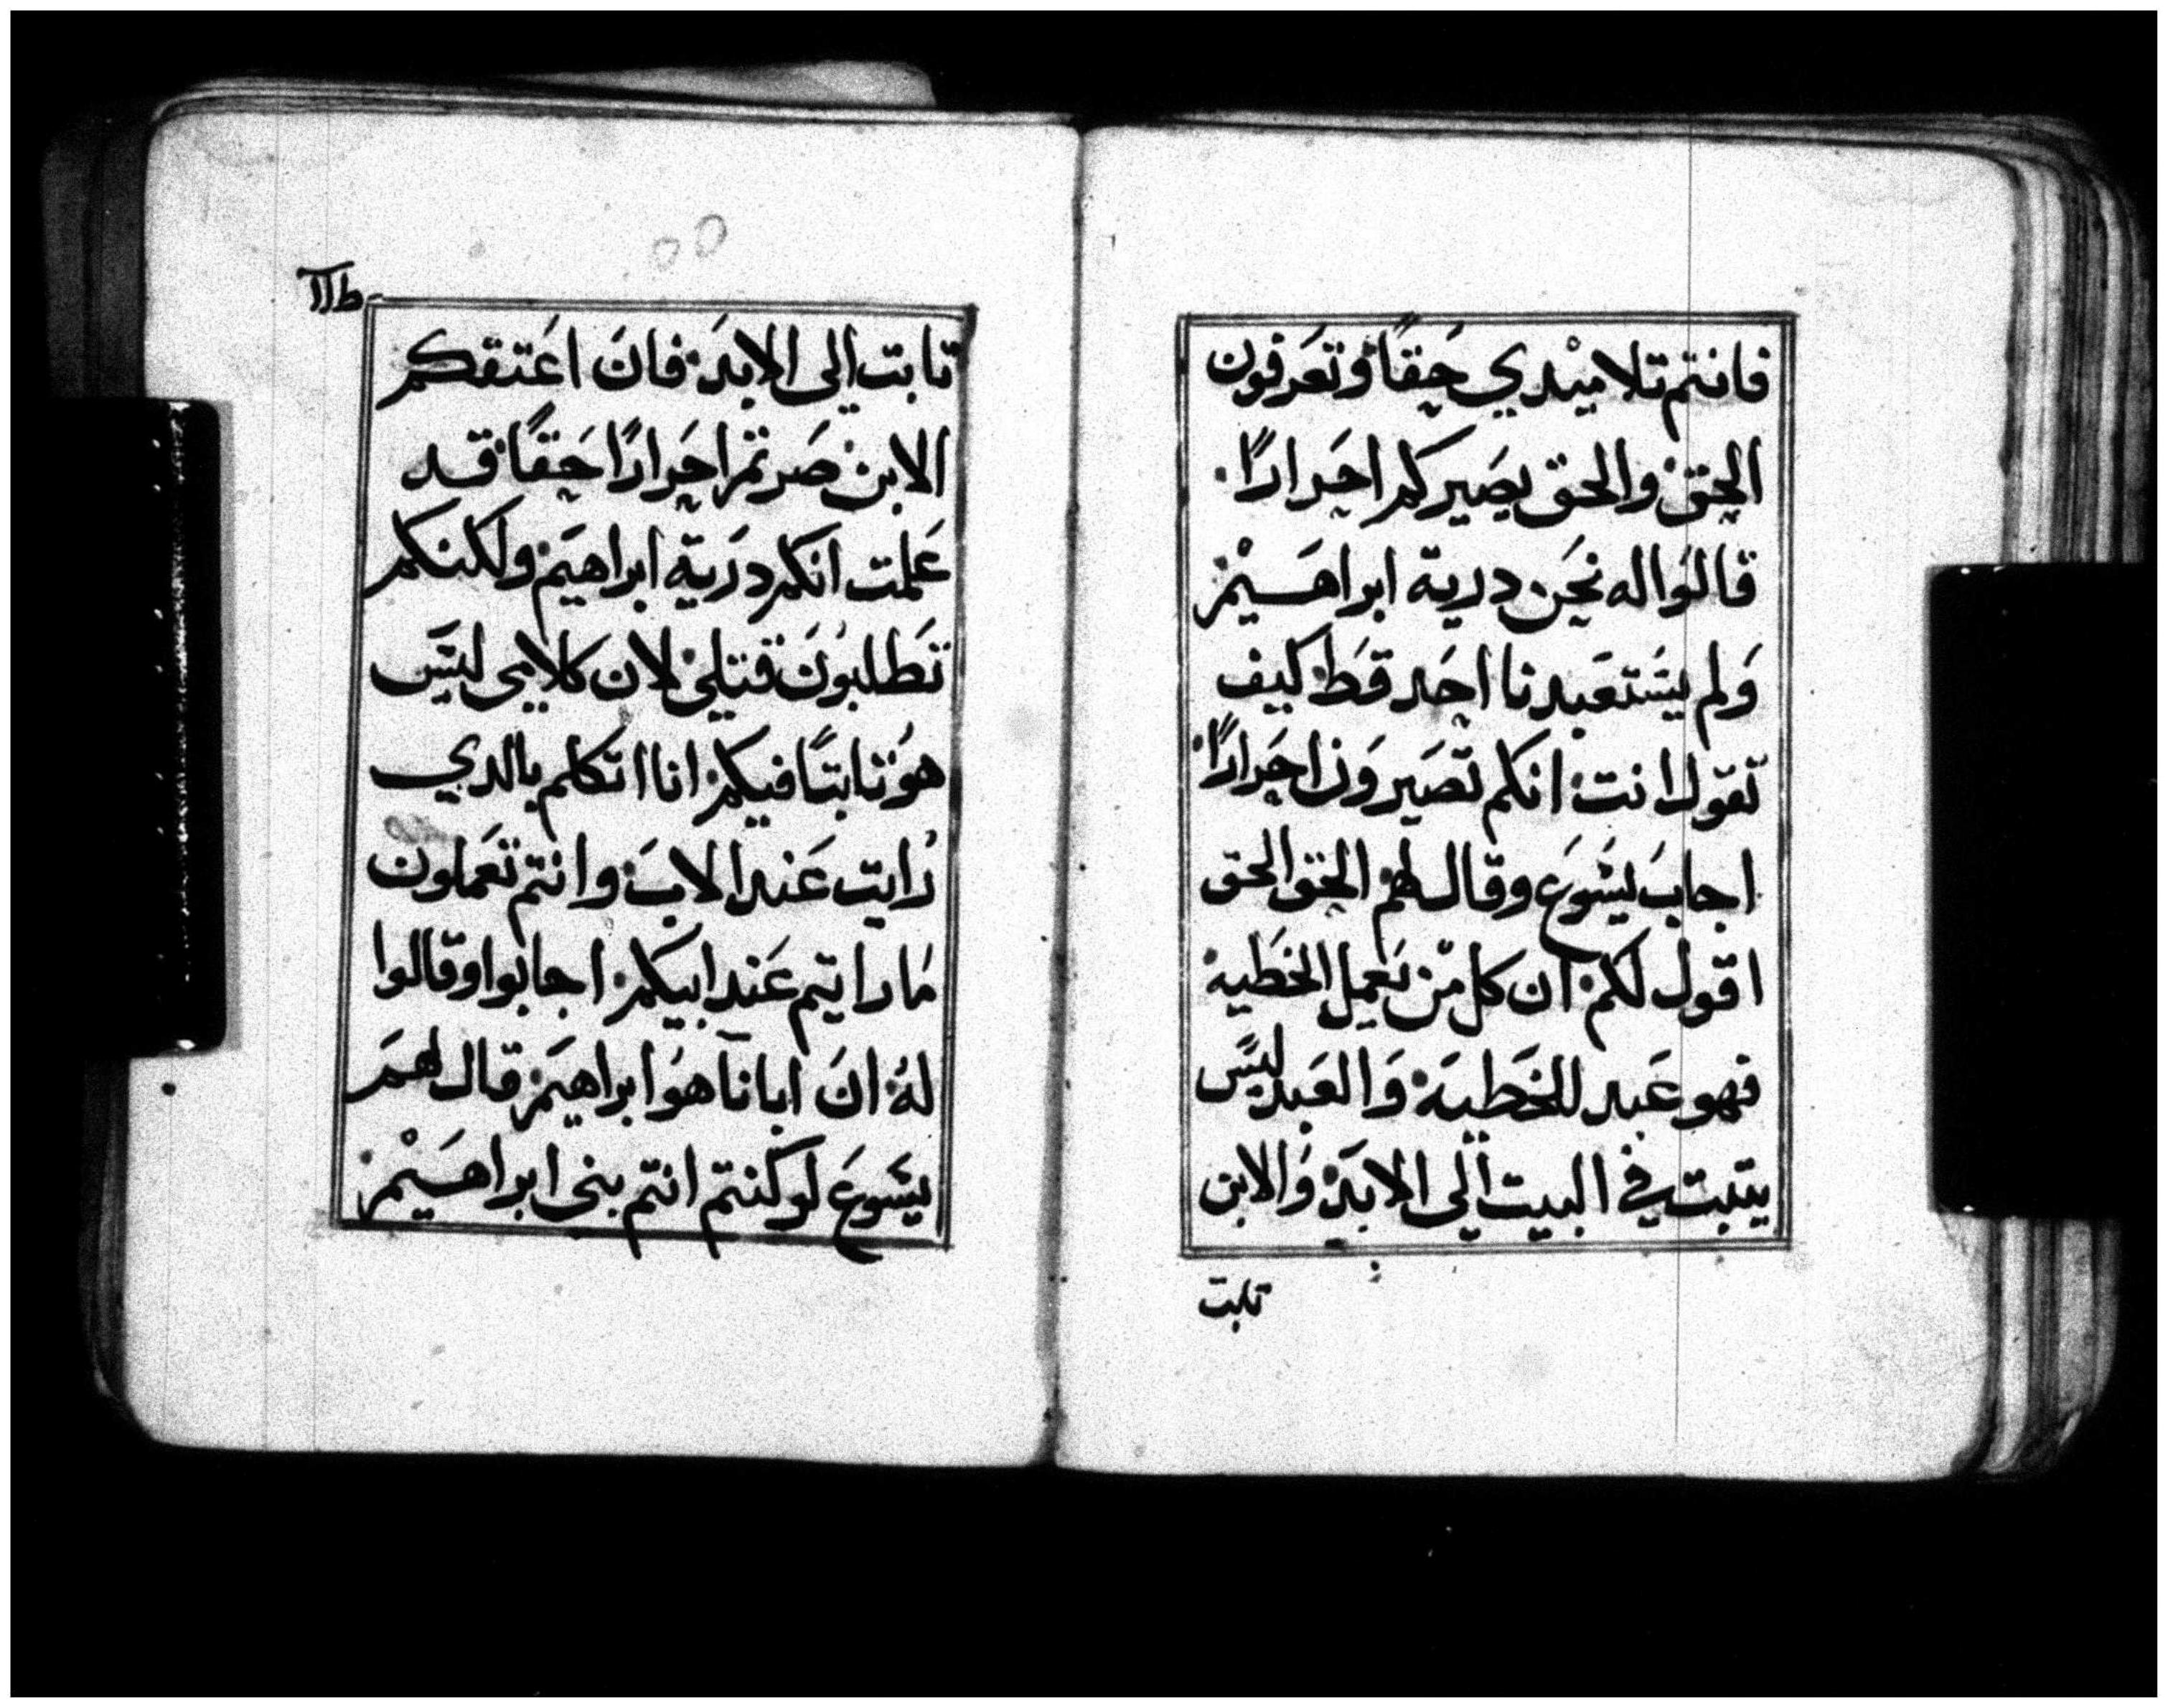 فانتم تلاميْدي حَقاً وتعَرفون
الحق والحق يصَيركم احَرارًا
قالوَا له نحَن درية ابراهَيمْ
وَلم يسَتعَبدنا احَد قطَ كيف
تقوَل انت انكم تصَيروَن احَرارًا
اجابَ يسَوعَ وقال لهم الحق الحق
اقول لكم ان كل مَن يعَمل الخطَيه
فهو عَبد للخَطيَة وَالعَبد ليسَ
يتبت في البيت الَى الابَد وَالابن
تلبت
تابت الى الابدَ فانَ اعَتقكم
الابن صَرتم احَرارًا حَقاً قد
عَلمت انكم درَية ابراهيَم ولكنكم
تطَلبوُنَ قتلي لان كلامي ليسَ
هوُ تابتاً فيكم انا اتكلم بالدي
رُايت عَند الابَ وانتم تعَملون
مَا رايتم عَند ابيكم اجابوا وقالوا
لهُ انَ ابانآ هوُ ابراهيَم قال لهمَ
يسَوعَ لوكنتم انتم بنى ابراهَيمْ